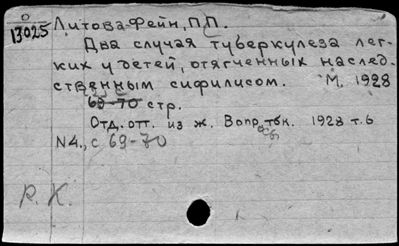 0
13025
Литова-Фейн, П.П.
Два случая туберкулеза лег-
ких у детей, отягченных наслед-
ственным сифилисом. М. 1928
69-70 стр.
Отд. отт. из ж. Вопр. тбк. 1928 т.6
N4., с 69-70
Р. К.